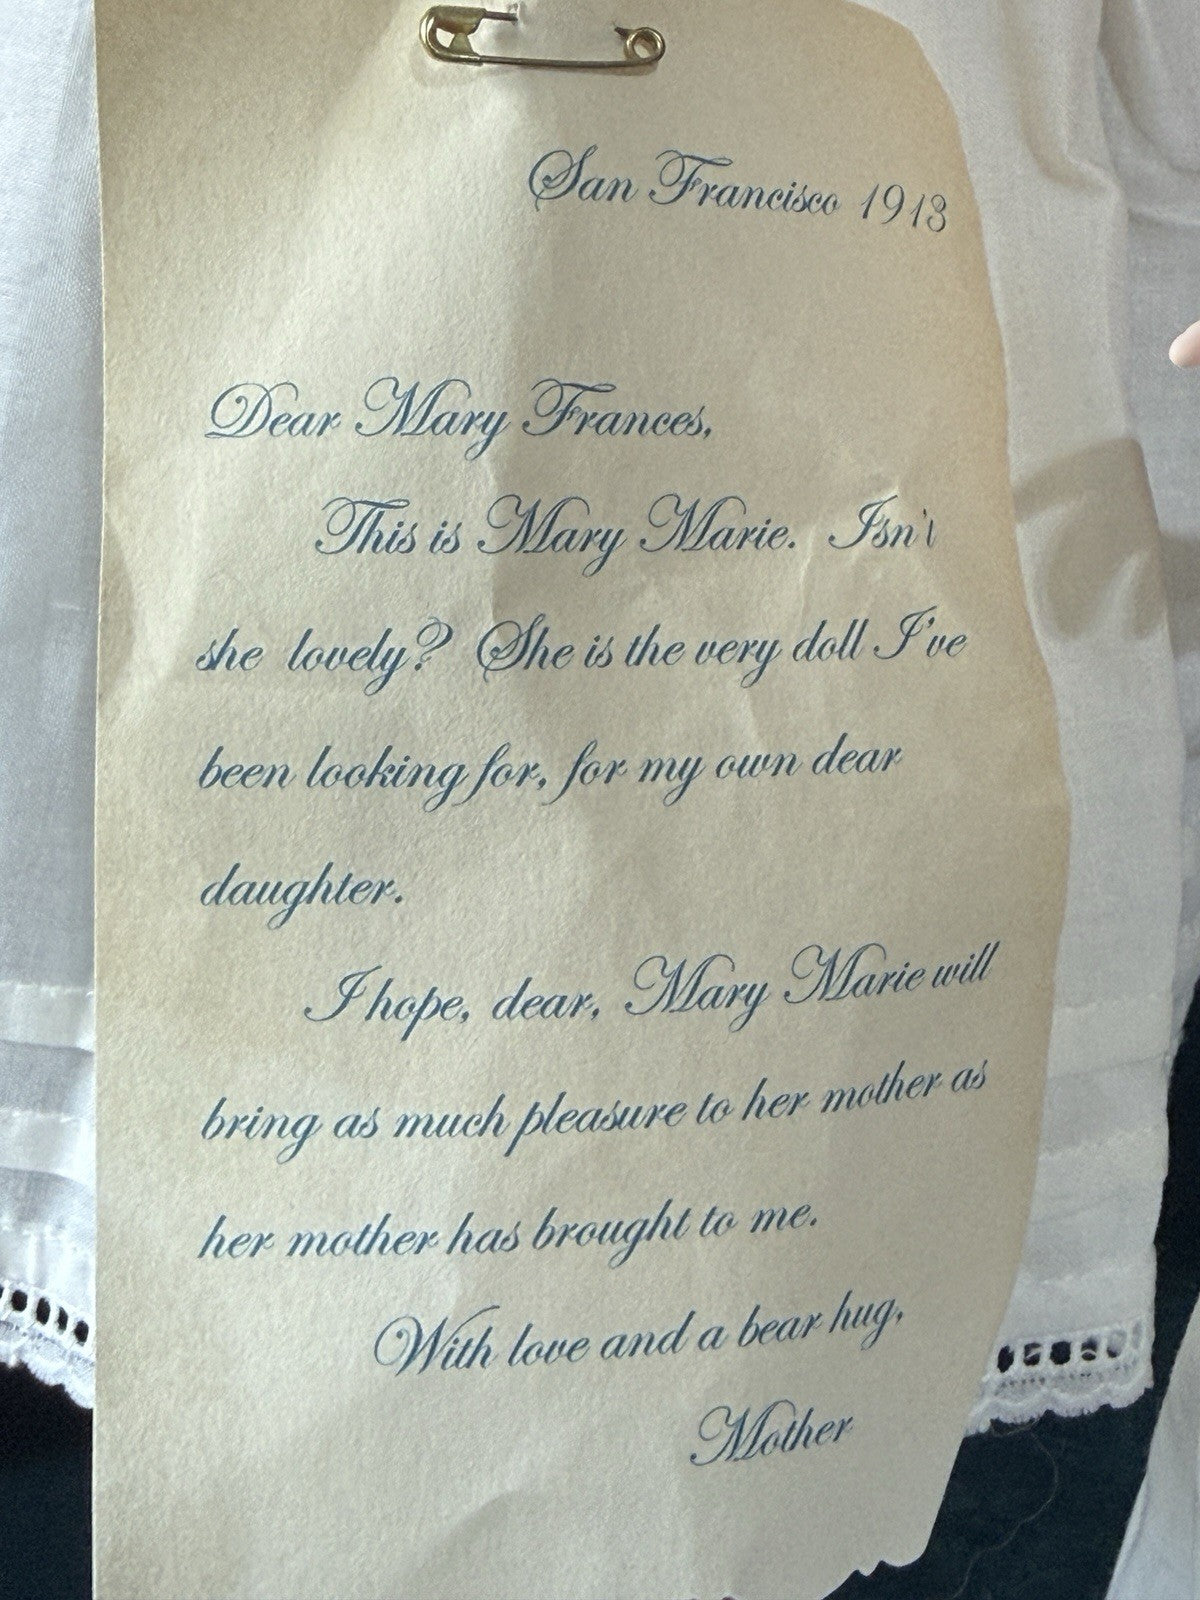 San Francisco 1913
Dear Mary Frances,
This is Mary Marie. Isn't
she lovely? She is the very doll I've
been looking for, for my own dear
daughter.
I hope, dear, Mary Marie will
bring as much pleasure to her mother as
her mother has brought to me.
With love and a bear hug,
Mother